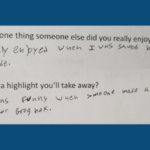 one thing someone else did you really enjoy
ly enjoyed when I was saved b
de.
a highlight you'll take away?
as funny when someone made a
or Grog bar.